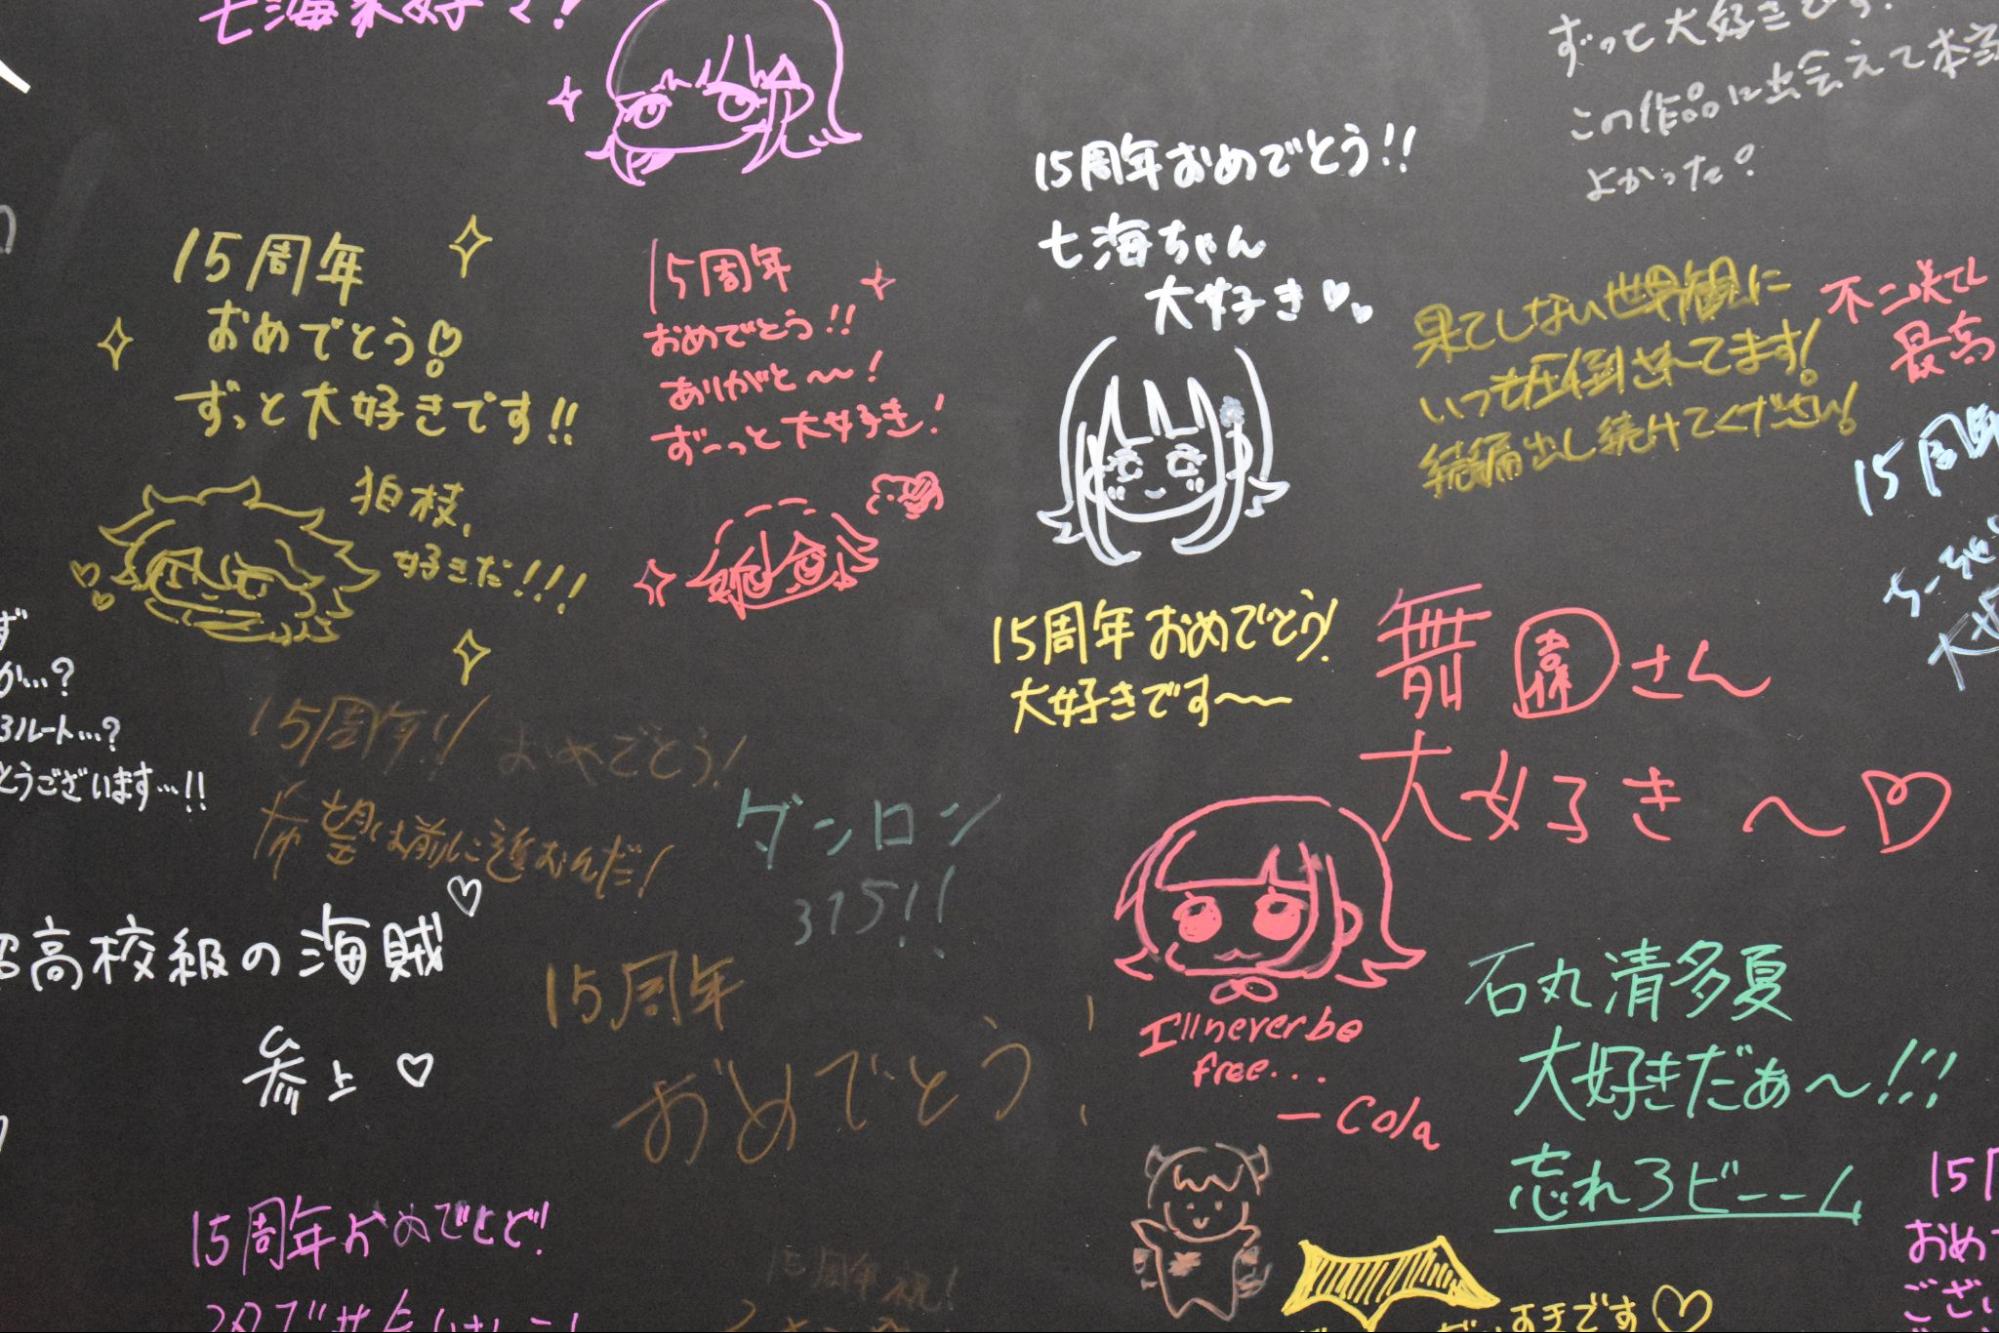 七海
15周年
おめでとう!
ずっと大好きです!!
狛枝、
好きだ!!!
15周年
おめでとう!!
ありがと〜〜!
ずーっと大好き!
15周年おめでとう!!
七海ちゃん
大好き♡♡
ずっと大好きです!
この作品に出会えて本当
よかった。
果てしない世界観に
いつも圧倒されてます!
続編出し続けてください!
不二咲
最高
15周年
15周年おめでとう!
大好きです〜〜
舞園さん
大好き〜♡
I'll never be
free...
— Cola
石丸清多夏
大好きだぁ〜!!!
忘れろビーーム
か...?
ルート...?
とうございます...!!
15周年!! おめでとう!
希望は前に進むんだ!
ダンロン
3 15!!
超高校級の海賊♡
参上♡
15周年
おめでとう!
15周年おめでとう!
15周年祝!
すきです♡
15
おめ
ござい